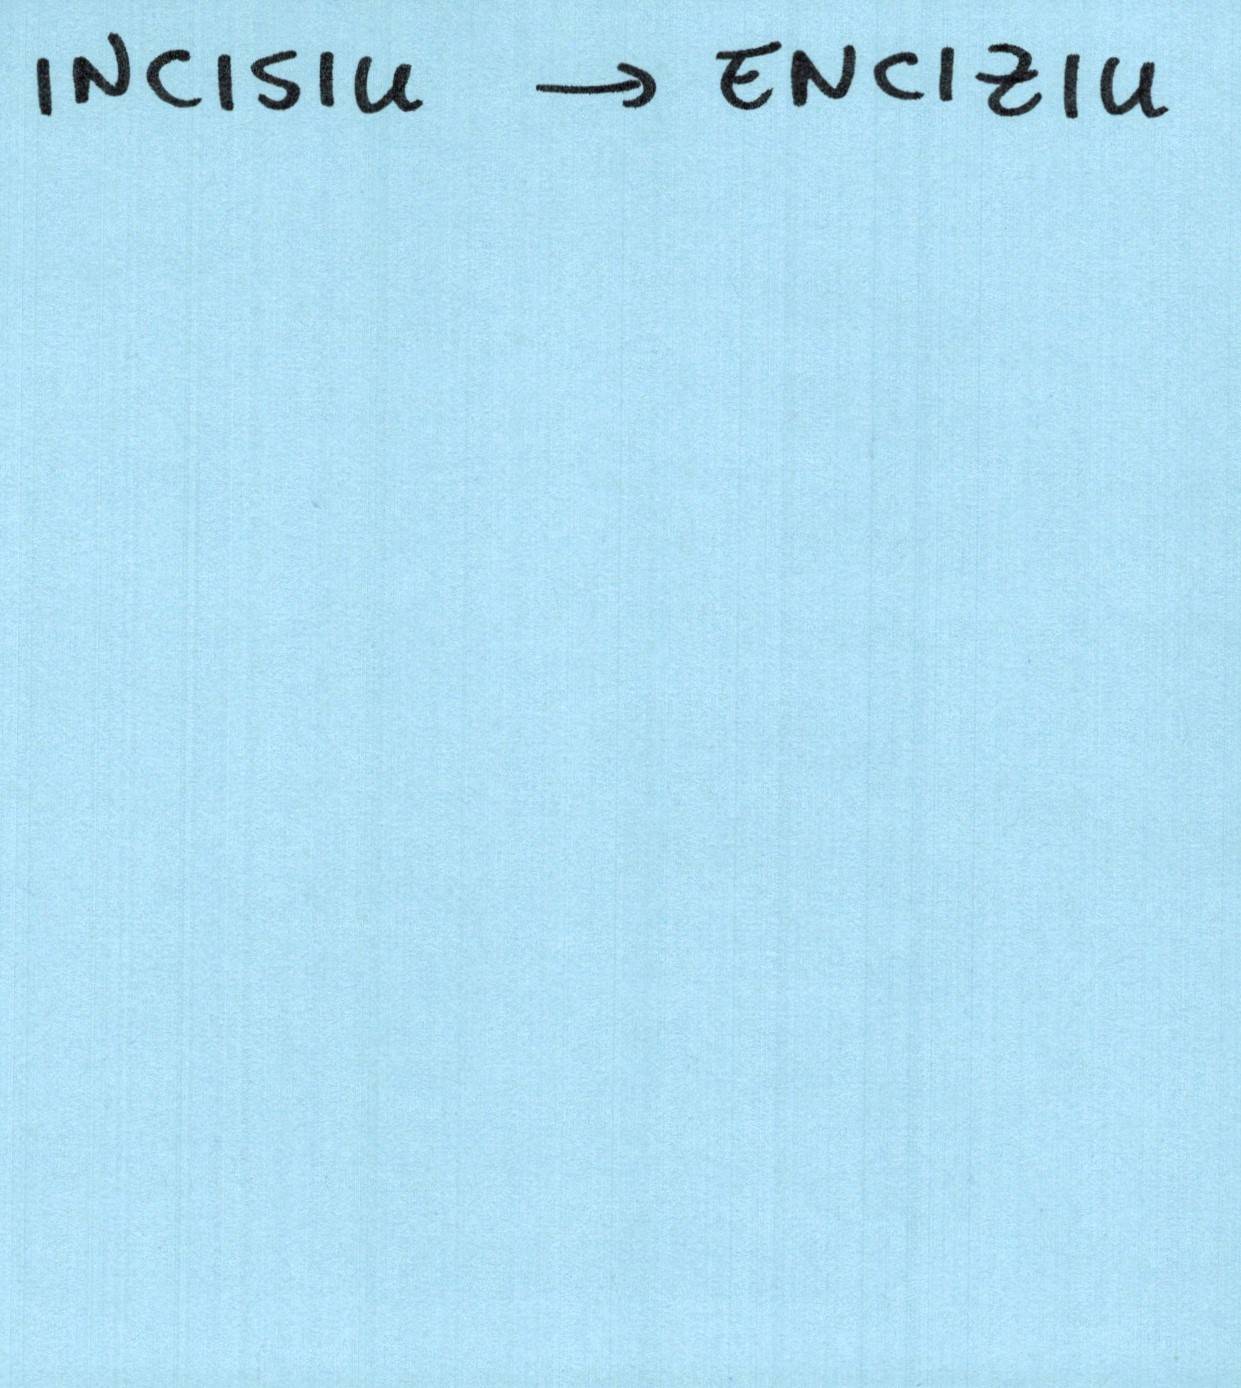 INCISIU → ENCIZIU